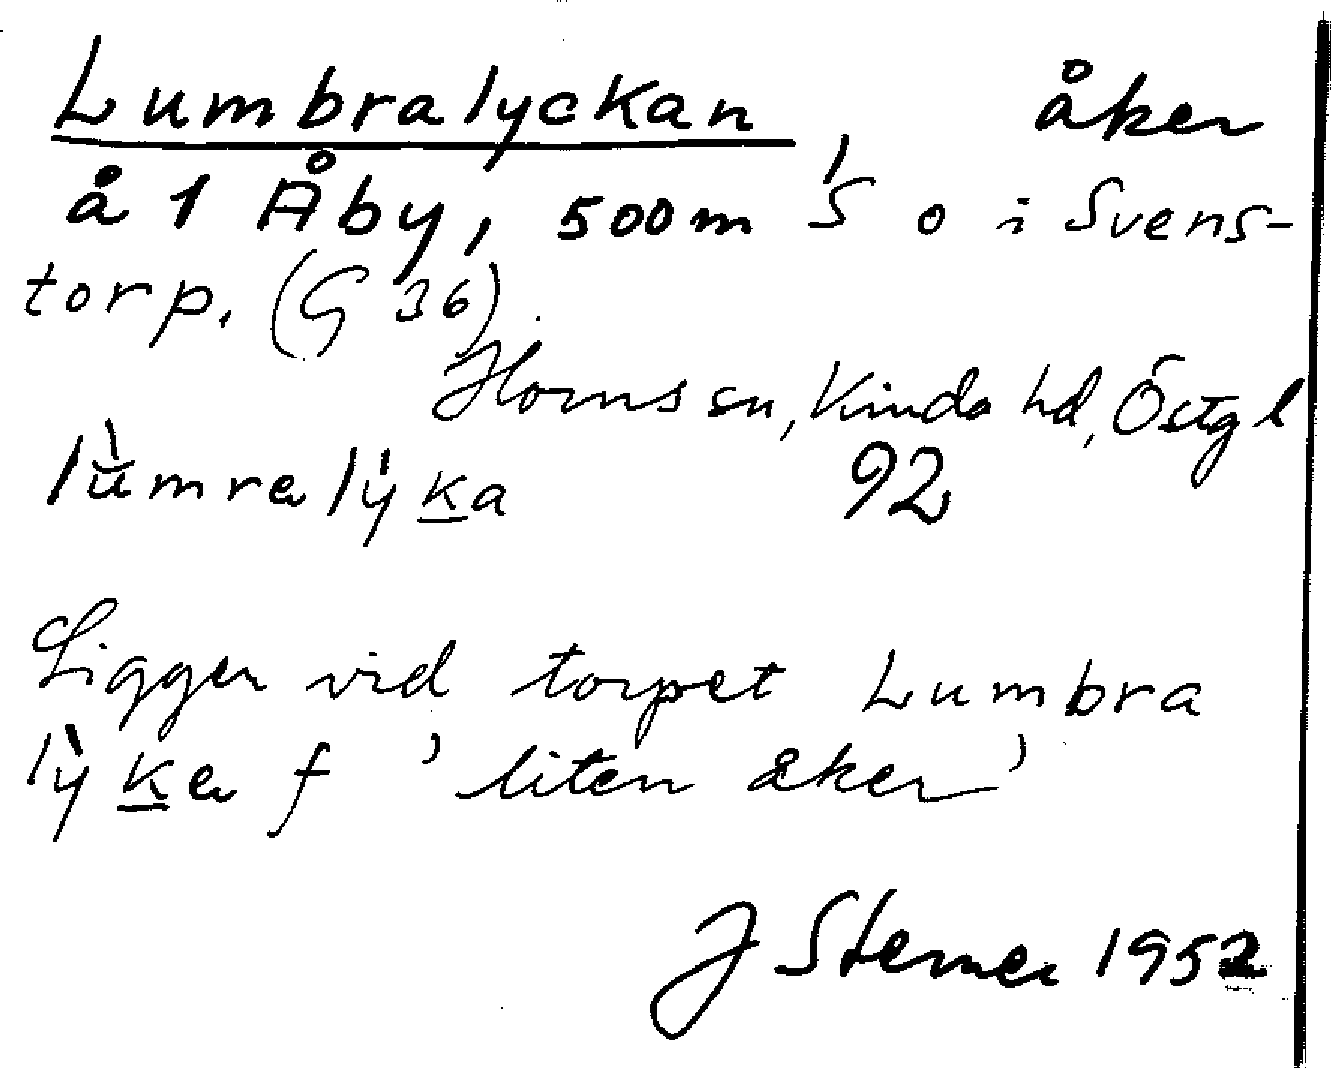 Lumbralyckan, åker
å 1 Åby, 500 m S o i Svens-
torp. (G 36).
Horns sn, Kinda hd, Östgl
lùmralỳka 92
Ligger vid torpet Lumbra
lỳka f 'liten åker'
J Sterner 1952